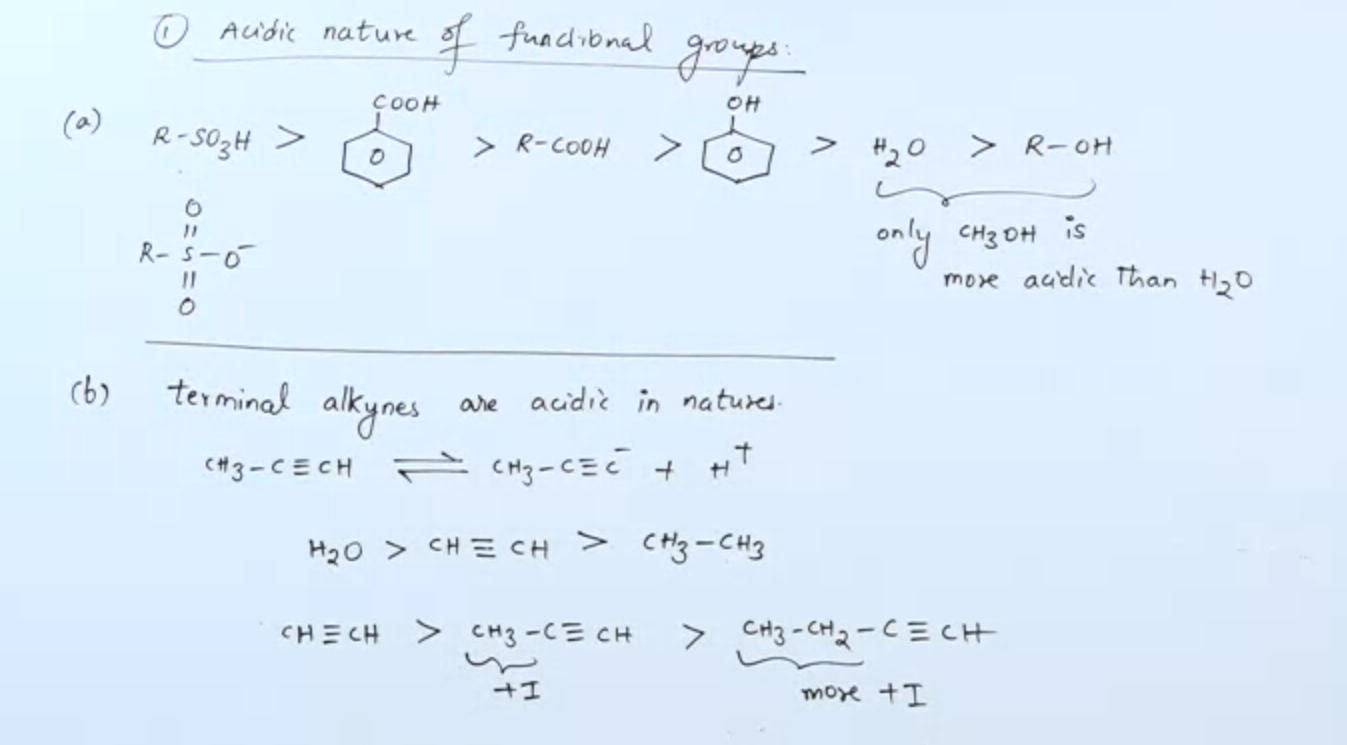 ① Acidic nature of functional groups:
(a) R-SO₃H > C₆H₅-COOH > R-COOH > C₆H₅-OH > H₂O > R-OH
O
||
R-S-O⁻
||
O
only CH₃OH is
more acidic Than H₂O
(b) terminal alkynes are acidic in natures.
CH₃-C≡CH ⇌ CH₃-C≡C⁻ + H⁺
H₂O > CH≡CH > CH₃-CH₃
CH≡CH > CH₃-C≡CH > CH₃-CH₂-C≡CH
+I more +I